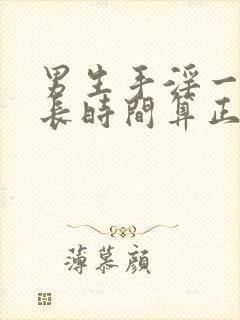 男生手淫一
長時間算正
薄慕顏